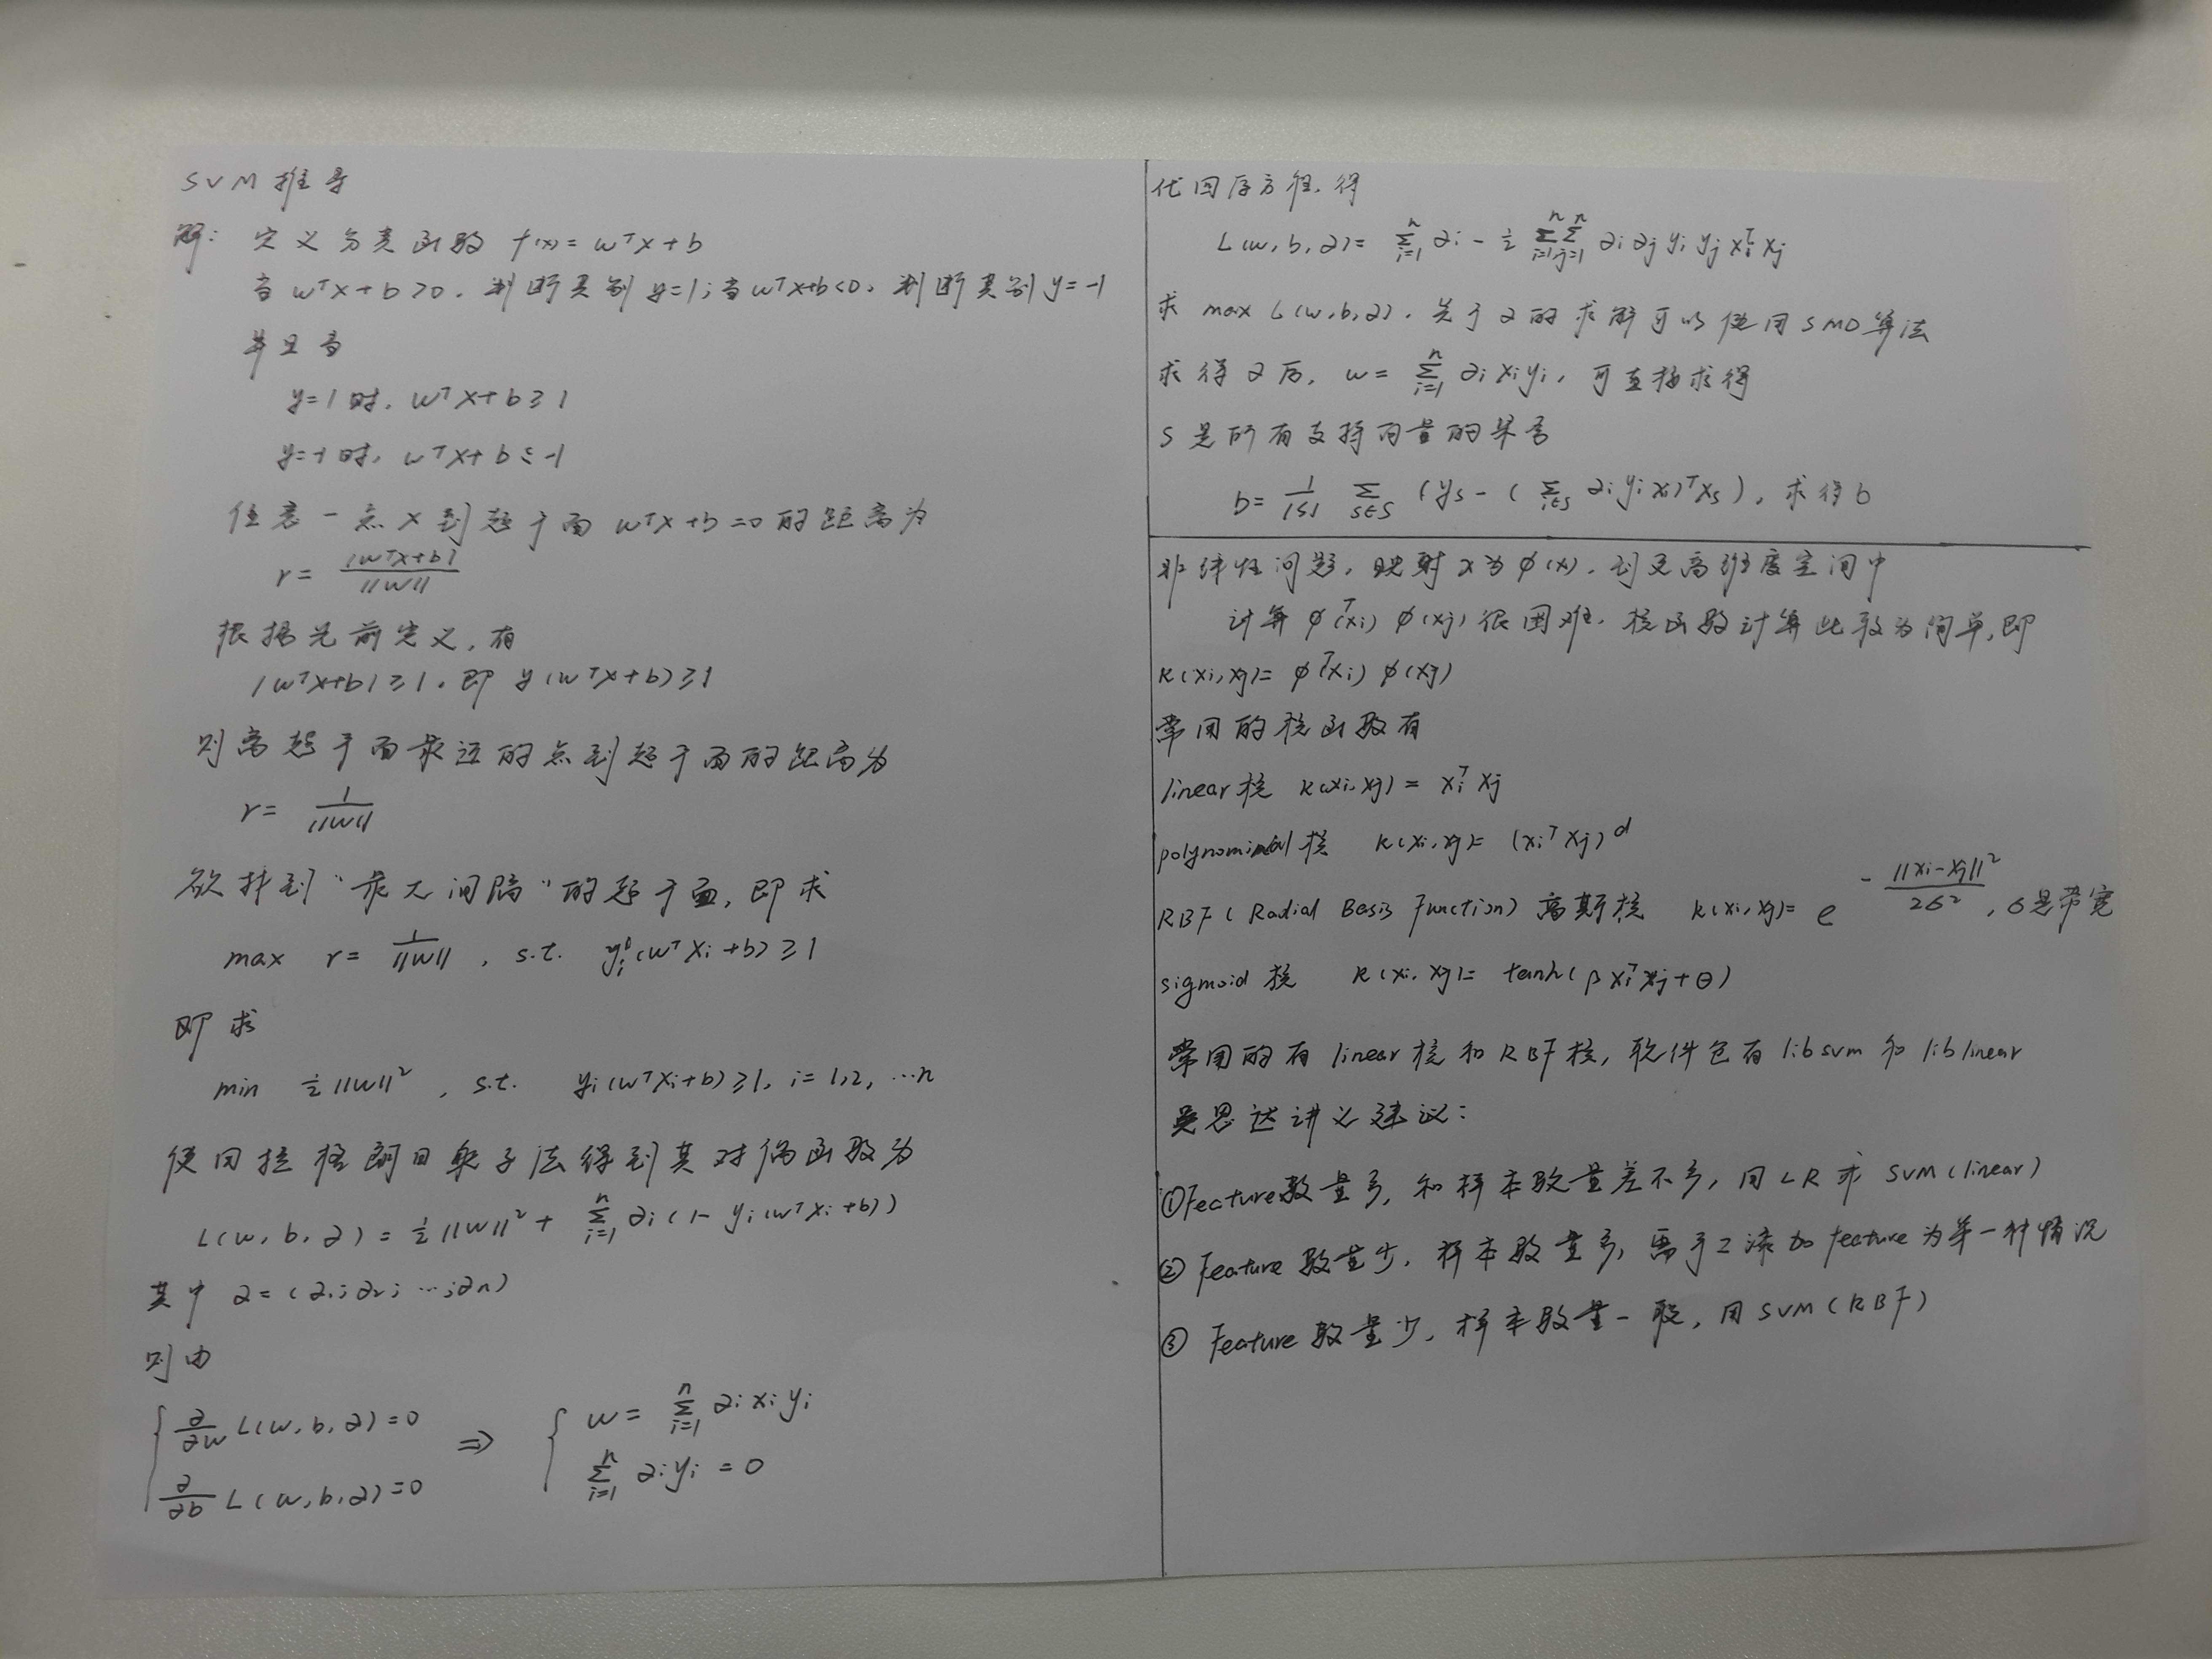 SVM推导
解: 定义分类函数 f(x) = wᵀx + b
当 wᵀx + b > 0, 判断类别 y=1; 当 wᵀx+b<0, 判断类别 y=-1
并且当
y=1时, wᵀx+b ≥ 1
y=-1时, wᵀx+b ≤ -1
任意一点x到超平面 wᵀx+b=0的距离为
r = |wᵀx+b| / ||w||
根据先前定义, 有
|wᵀx+b| ≥ 1, 即 y(wᵀx+b) ≥ 1
则离超平面最近的点到超平面的距离为
r = 1 / ||w||
欲找到"最大间隔"的超平面, 即求
max r = 1/||w|| , s.t. yᵢ(wᵀxᵢ+b) ≥ 1
即求
min ½||w||² , s.t. yᵢ(wᵀxᵢ+b) ≥ 1, i=1,2, …n
使用拉格朗日乘子法得到其对偶函数为
L(w, b, α) = ½||w||² + Σᵢ₌₁ⁿ αᵢ(1- yᵢ(wᵀxᵢ+b))
其中 α = (α₁; α₂; …; αn)
则由
{ ∂/∂w L(w, b, α) = 0 ⇒ { w = Σᵢ₌₁ⁿ αᵢxᵢyᵢ
∂/∂b L(w, b, α) = 0 Σᵢ₌₁ⁿ αᵢyᵢ = 0
代回原方程, 得
L(w, b, α) = Σᵢ₌₁ⁿ αᵢ - ½ Σᵢ₌₁ⁿ Σⱼ₌₁ⁿ αᵢαⱼyᵢyⱼxᵢᵀxⱼ
求 max L(w, b, α), 关于α的求解可以使用SMO算法
求得α后, w = Σᵢ₌₁ⁿ αᵢxᵢyᵢ, 可直接求得
S是所有支持向量的集合
b = 1/|S| Σ_{s∈S} (yₛ - (Σ_{i∈S} αᵢyᵢxᵢ)ᵀxₛ), 求得b
非线性问题, 映射x为φ(x), 到更高维度空间中
计算 φᵀ(xᵢ) φ(xⱼ) 很困难, 核函数计算比较为简单, 即
k(xᵢ, xⱼ) = φᵀ(xᵢ) φ(xⱼ)
常用的核函数有
linear核 k(xᵢ, xⱼ) = xᵢᵀxⱼ
polynominal核 k(xᵢ, xⱼ) = (xᵢᵀxⱼ)ᵈ
RBF(Radial Basis Function)高斯核 k(xᵢ, xⱼ) = e^(-||xᵢ-xⱼ||²/2σ²), σ是带宽
sigmoid核 k(xᵢ, xⱼ) = tanh(βxᵢᵀxⱼ+θ)
常用的有linear核和RBF核, 软件包有libsvm和liblinear
吴恩达讲义建议:
①Feature数量多, 和样本数量差不多, 用LR或SVM(linear)
② Feature数量少, 样本数量多, 需手工添加feature为第一种情况
③ Feature数量少, 样本数量一般, 用SVM(RBF)